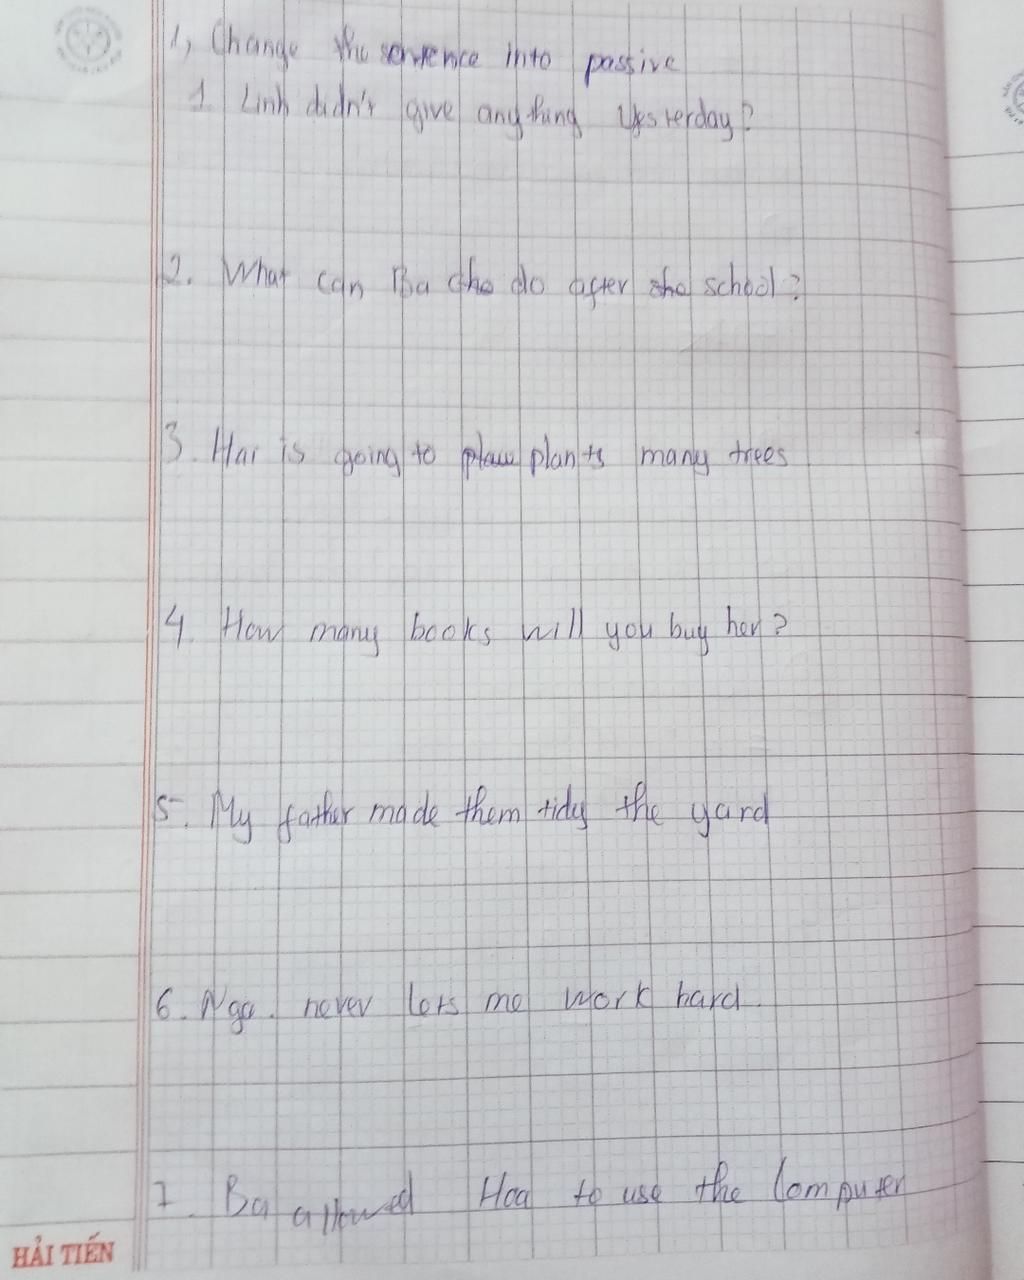 1, Change the sentence into passive
1. Linh didn't give anything yesterday?
2. What can Ba do after school?
3. Hai is going to plants many trees
4. How many books will you buy her?
5. My father made them tidy the yard
6. Nga. never lets me work hard.
7. Ba allowed Hoa to use the computer
HẢI TIẾN